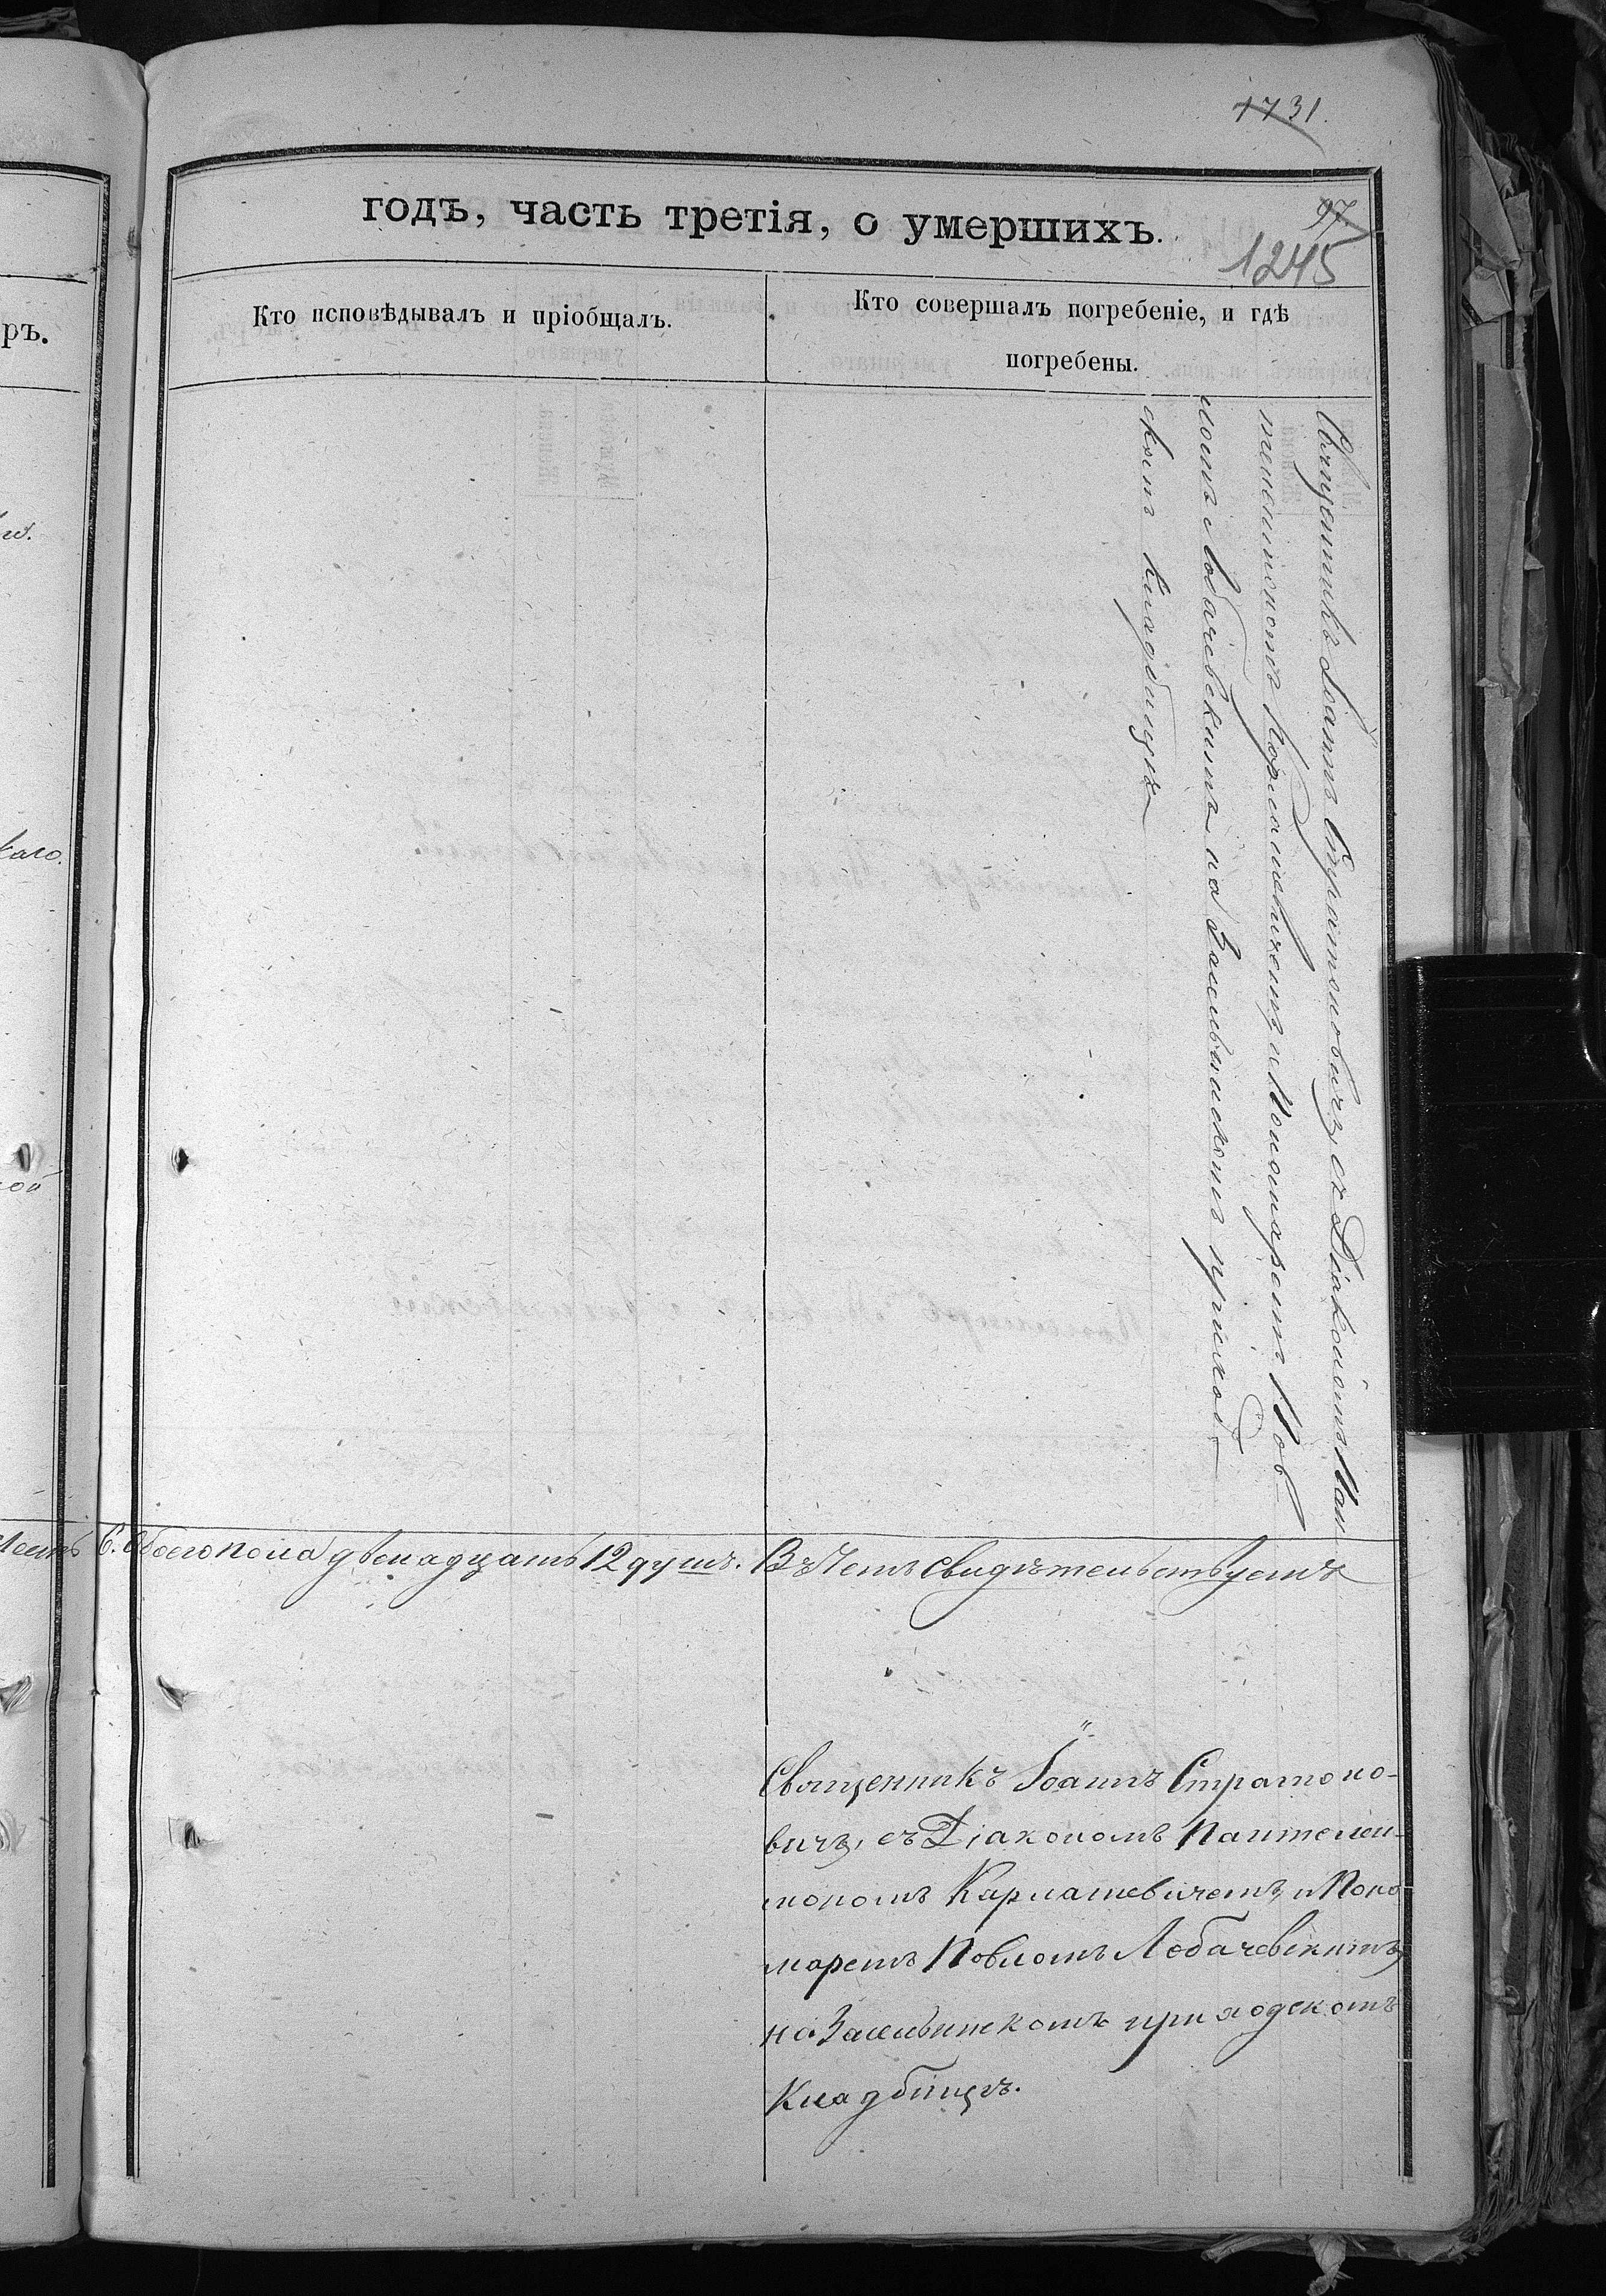 1731.
годъ, часть третія, о умершихъ.
97
1245
Кто исповѣдывалъ и пріобщалъ.
Кто совершалъ погребеніе, и гдѣ
погребены.
ръ.
каго.
кой
Священникъ Іоаннъ Стратоновичъ, съ Діакономъ Пан
телеимономъ Карпашевичемъ и Пономаремъ Пов
ломъ Лобачевскимъ на Зами приход
скомъ Кладбищѣ
6. Обоего пола двенадцать 12 душъ. Въ чемъ свидѣтельствуемъ
Священникъ Іоаннъ Стратоно-
вичъ, съ Діакономъ Пантелеи-
мономъ Карпашевичемъ, и Поно
маремъ Повломъ Лобачевскимъ,
на приходскомъ
Кладбищѣ.